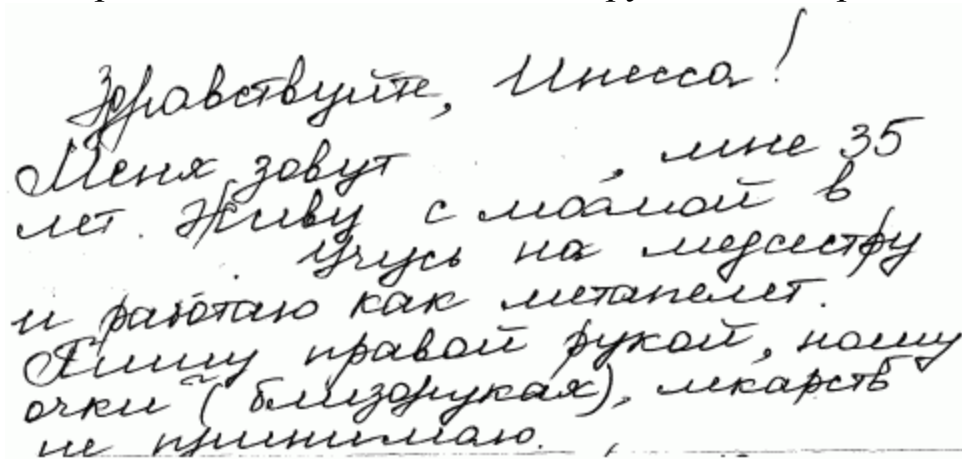 Здравствуйте, Инесса!
Меня зовут , мне 35
лет. Живу с мамой в
. Учусь на медсестру
и работаю как метапелет.
Пишу правой рукой, ношу
очки (близорукая), лекарств
не принимаю.